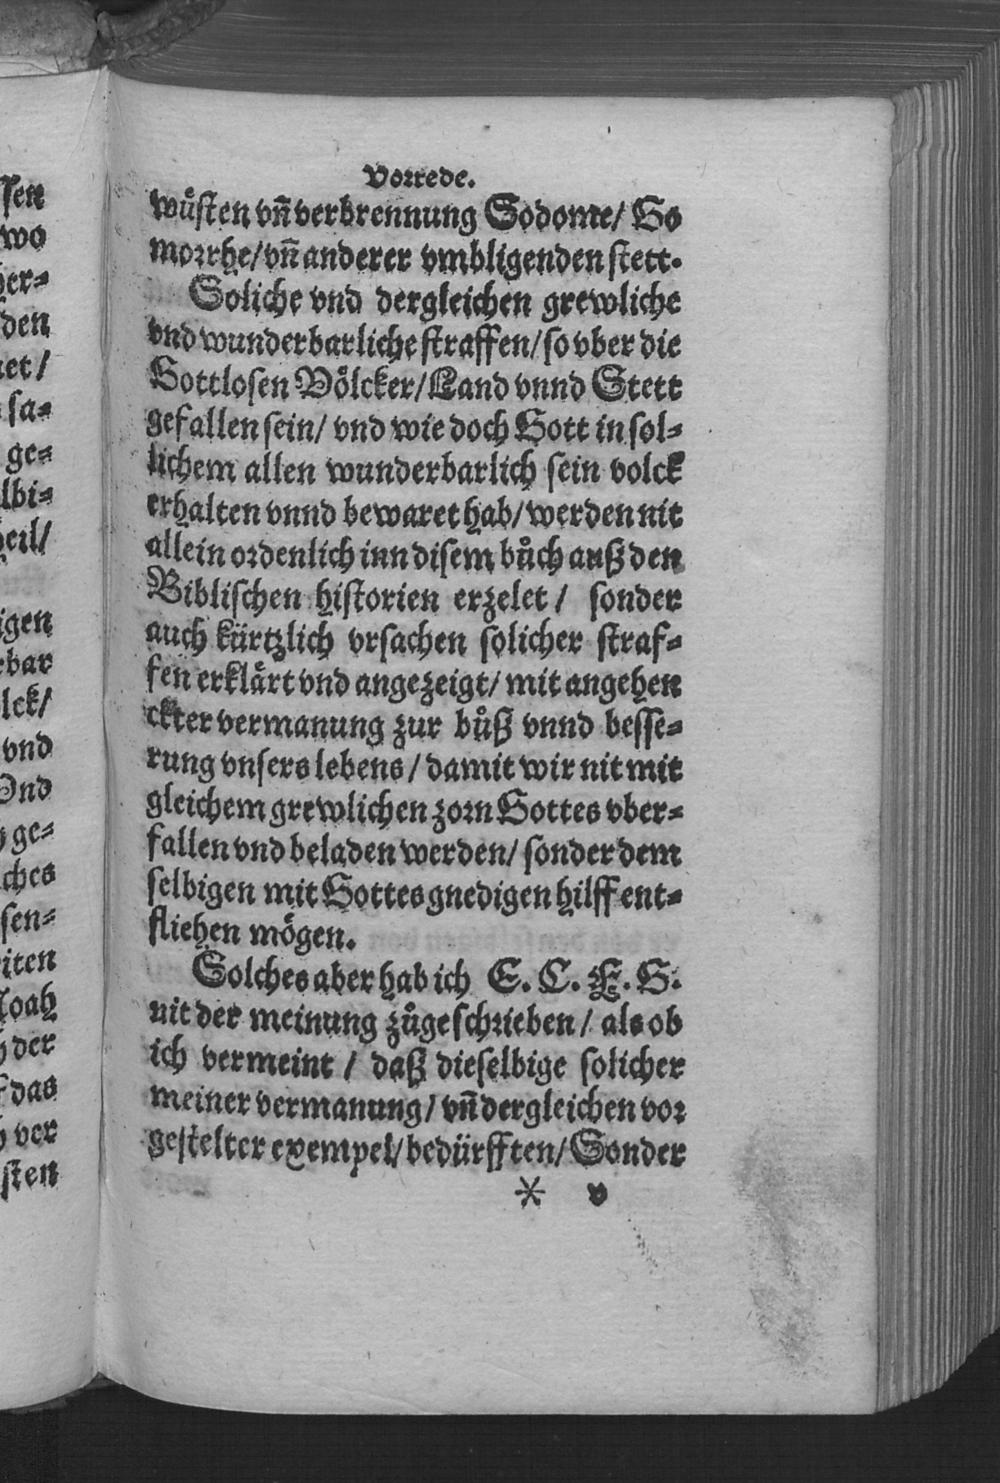 Vorrede.
wuͤſten vñ verbrennung Sodome/ Go
morrhe/ vñ anderer vmbligenden ſtett.
Soliche vnd dergleichen grewliche
vnd wunderbarliche ſtraffen/ ſo vber die
Gottloſen Voͤlcker/ Land vnnd Stett
gefallen ſein/ vnd wie doch Gott in ſol⸗
lichem allen wunderbarlich ſein volck
erhalten vnnd bewaret hab/ werden nit
allein ordenlich inn diſem bůch auß den
Bibliſchen hiſtorien erzelet / ſonder
auch kürtzlich vrſachen ſolicher ſtraf⸗
fen erklaͤrt vnd angezeigt/ mit angehen
ckter vermanung zur bůß vnnd beſſe⸗
rung vnſers lebens / damit wir nit mit
gleichem grewlichen zorn Gottes vber⸗
fallen vnd beladen werden/ ſonder dem
ſelbigen mit Gottes gnedigen hilff ent⸗
fliehen moͤgen.
Solches aber hab ich E. C. F. G.
nit der meinung zůgeſchrieben / als ob
ich vermeint / daß dieſelbige ſolicher
meiner vermanung/ vñ dergleichen vor
geſtelter exempel/ bedürfften/ Sonder
* v
ſen
wo
her⸗
den
et/
ſa⸗
ge⸗
lbi⸗
heil/
igen
rbar
lck/
vnd
Vnd
ge⸗
ches
ſen⸗
iten
Noah
der
das
ver
ſten